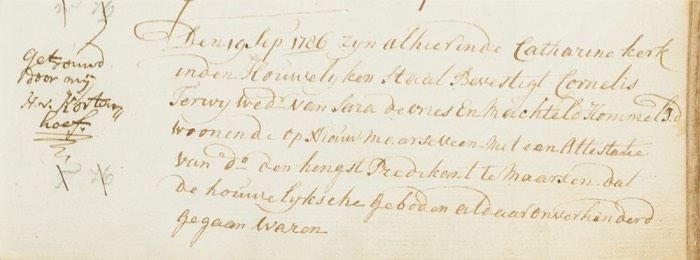 getrouwd
door mij
H. v. Korten
hoef.
Den 19 Sepr 1786 zyn alhier inde Catharine kerk
inden Houwelyken Staat Bevestigt Cornelis
Terwy wedr van Sara de vries En Machteld Hommel J:d
woonende op Nieuw maarseveen met een Attestatie
van do den hengst Predikant te Maarsen dat
de houwelyksche geboden aldaar onverhinderd
gegaan waren